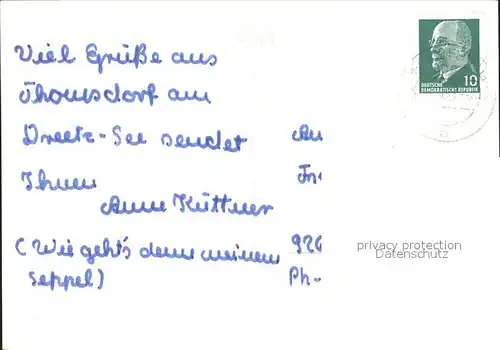 Viel Grüße aus
Thomsdorf am
Dreetz-See sendet
Ihnen
Anne Küttner
(Wie geht's denn meinem
Seppel)
An
Fr
926
Ph
10
DEUTSCHE
DEMOKRATISCHE REPUBLIK
privacy protection
Datenschutz